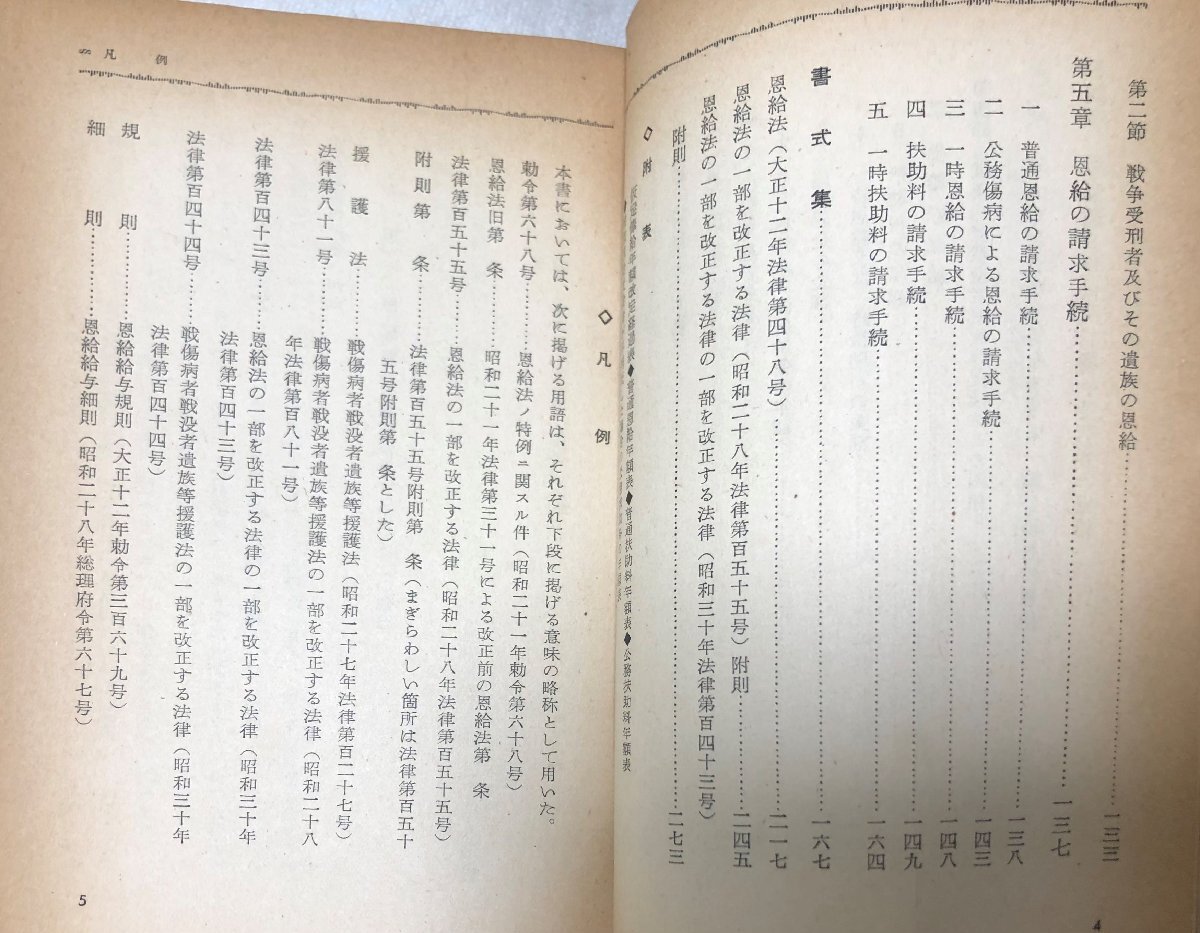 第二節 戦争受刑者及びその遺族の恩給……一三三
第五章 恩給の請求手続……一三七
一 普通恩給の請求手続……一三八
二 公務傷病による恩給の請求手続……一四三
三 一時恩給の請求手続……一四八
四 扶助料の請求手続……一四九
五 一時扶助料の請求手続……一六四
書式集……一六七
恩給法(大正十二年法律第四十八号)……二一七
恩給法の一部を改正する法律(昭和二十八年法律第百五十五号)附則……二四五
恩給法の一部を改正する法律の一部を改正する法律(昭和三十年法律第百四十三号)
附則……二七三
◇附表
◆普通恩給年額表◆普通扶助料年額表◆公務扶助料年額表
4
凡例
◇凡例
本書においては、次に掲げる用語は、それぞれ下段に掲げる意味の略称として用いた。
勅令第六十八号……恩給法ノ特例ニ関スル件(昭和二十一年勅令第六十八号)
恩給法旧第 条……昭和二十一年法律第三十一号による改正前の恩給法第 条
法律第百五十五号……恩給法の一部を改正する法律(昭和二十八年法律第百五十五号)
附則第 条……法律第百五十五号附則第 条(まぎらわしい箇所は法律第百五十
五号附則第 条とした)
援護法……戦傷病者戦没者遺族等援護法(昭和二十七年法律第百二十七号)
法律第八十一号……戦傷病者戦没者遺族等援護法の一部を改正する法律(昭和二十八
年法律第百八十一号)
法律第百四十三号……恩給法の一部を改正する法律の一部を改正する法律(昭和三十年
法律第百四十三号)
法律第百四十四号……戦傷病者戦没者遺族等援護法の一部を改正する法律(昭和三十年
法律第百四十四号)
規則……恩給給与規則(大正十二年勅令第三百六十九号)
細則……恩給給与細則(昭和二十八年総理府令第六十七号)
5